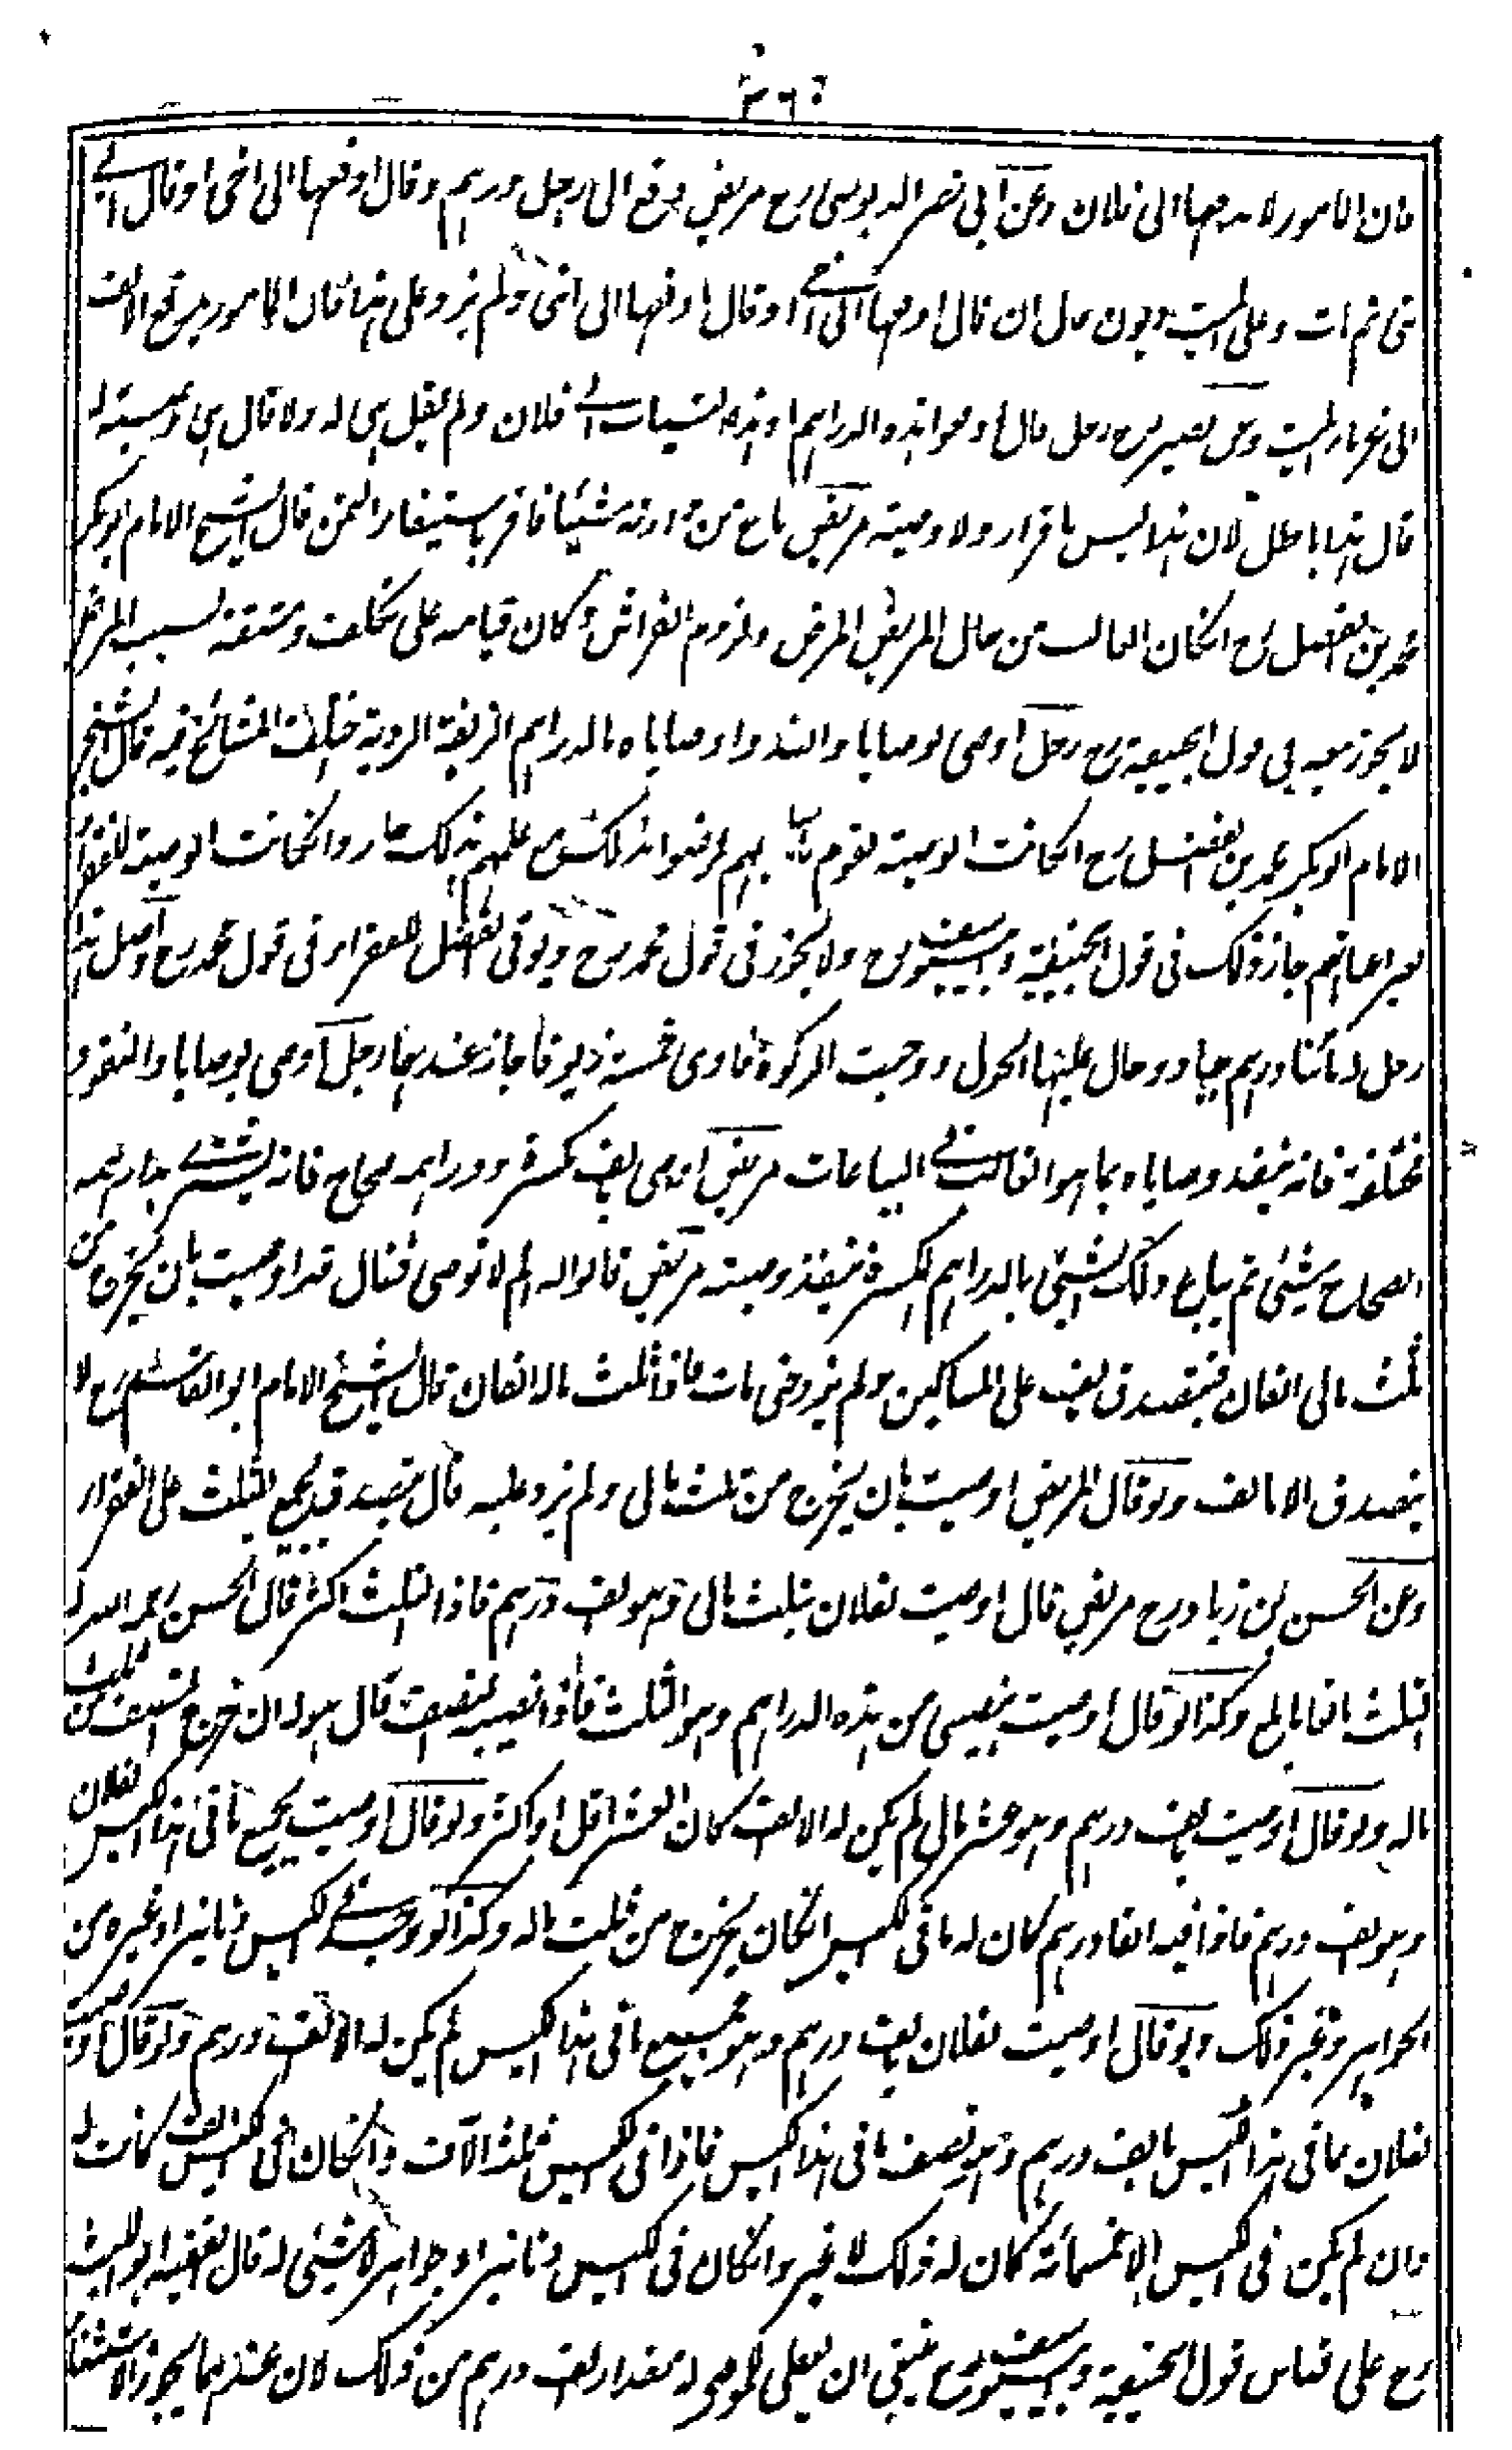 فان المامور لا يدفعها الى فلان وعن ابى نصر الدبوسى رح مريض دفع الى رجل دراهم وقال ادفعها الى اخى او قال الى
ابنى ثم مات وعلى الميت ديون قال ان قال ادفعها الى اخى او قال ادفعها الى ابنى ولم يزد على هذا فان المامور يدفع الالف
الى غرماء الميت وعن نصير رح رجل قال ادفعوا هذه الدراهم او هذه الثياب الى فلان ولم يقل هى له ولا قال هى وصية له
قال هذا باطل لان هذا ليس باقرار ولا وصية مريض باع من وارثه شيئا فاقر باستيفاء الثمن قال الشيخ الامام ابو بكر
محمد بن الفضل رح انكان الغالب من حال المريض المرض ولزوم الفراش وكان قيامه على تكلف ومشقة لسبب المرض
لا يجوز بيعه فى قول ابيحنيفة رح رجل اوصى بوصايا وانفذوا وصاياه بالدراهم الزيفة الردية اختلف المشائخ فيه قال الشيخ
الامام ابو بكر محمد بن الفضل رح انكانت الوصية لقوم باعيانهم فرضوا بذلك مع علمهم بذلك جاز وانكانت الوصية للفقراء
بغير اعيانهم جاز ذلك فى قول ابيحنيفة وابى يوسف رح ولا يجوز فى قول محمد رح ويؤدى الفضل للفقراء فى قول محمد رح اصل هذا
رجل له مائتا درهم جياد وحال عليها الحول ووجبت الزكوة فادى خمسة زيوفا جاز عندهما رجل اوصى بوصايا والنقود
مختلفة فانه ينفذ وصاياه بما هو الغالب فى البياعات مريض اوصى بالف مكسرة ودراهمه صحاح فانه يشترى بدراهمه
الصحاح شيئ ثم يباع ذلك الشيئ بالدراهم المكسرة فينفذ وصيته مريض قالوا له لم لا توصى فقال قد اوصيت بان يخرج من
ثلث مالى الفان فيتصدق بالف على المساكين ولم يزد حتى مات فاذا ثلث ماله الفان قال الشيخ الامام ابو القاسم رح لا
يتصدق الا بالف ولو قال المريض اوصيت بان يخرج من ثلث مالى ولم يزد عليه قال يتصدق بجميع الثلث على الفقراء
وعن الحسن بن زياد رح مريض قال اوصيت لفلان بثلث مالى وهو الف درهم فاذا الثلث اكثر قال الحسن رحمه الله له
الثلث بالغا ما بلغ وكذا لو قال اوصيت بنصيبى من هذه الدراهم وهو الثلث فاذا نصيبه النصف قال هو له ان خرج النصف من ثلث
ماله ولو قال اوصيت بالف درهم وهو عشر مالى لم يكن له الا الف كان العشر اقل او اكثر ولو قال اوصيت بجميع ما فى هذا الكيس لفلان
وهو الف درهم فاذا فيه الفا درهم كان له ما فى الكيس انكان يخرج من ثلث ماله وكذا لو وجد فى الكيس دنانير او غيره من
الجواهر وغير ذلك ولو قال اوصيت لفلان بالف درهم وهو جميع ما فى هذا الكيس لم يكن له الا الف درهم ولو قال اوصيت
لفلان مما فى هذا الكيس بالف درهم وهو نصف ما فى هذا الكيس فاذا فى الكيس ثلثة الآف وانكان فى الكيس الف كانت له
وان لم يكن فى الكيس الا خمسمائة كان له ذلك لا غير وانكان فى الكيس دنانير او جواهر لا شيئ له قال الفقيه ابو الليث
رح على قياس قول ابيحنيفة وابى يوسف رح ينبغى ان يعطى للموصى له مقدار الف درهم من ذلك لان عندهما يجوز الاستثناء